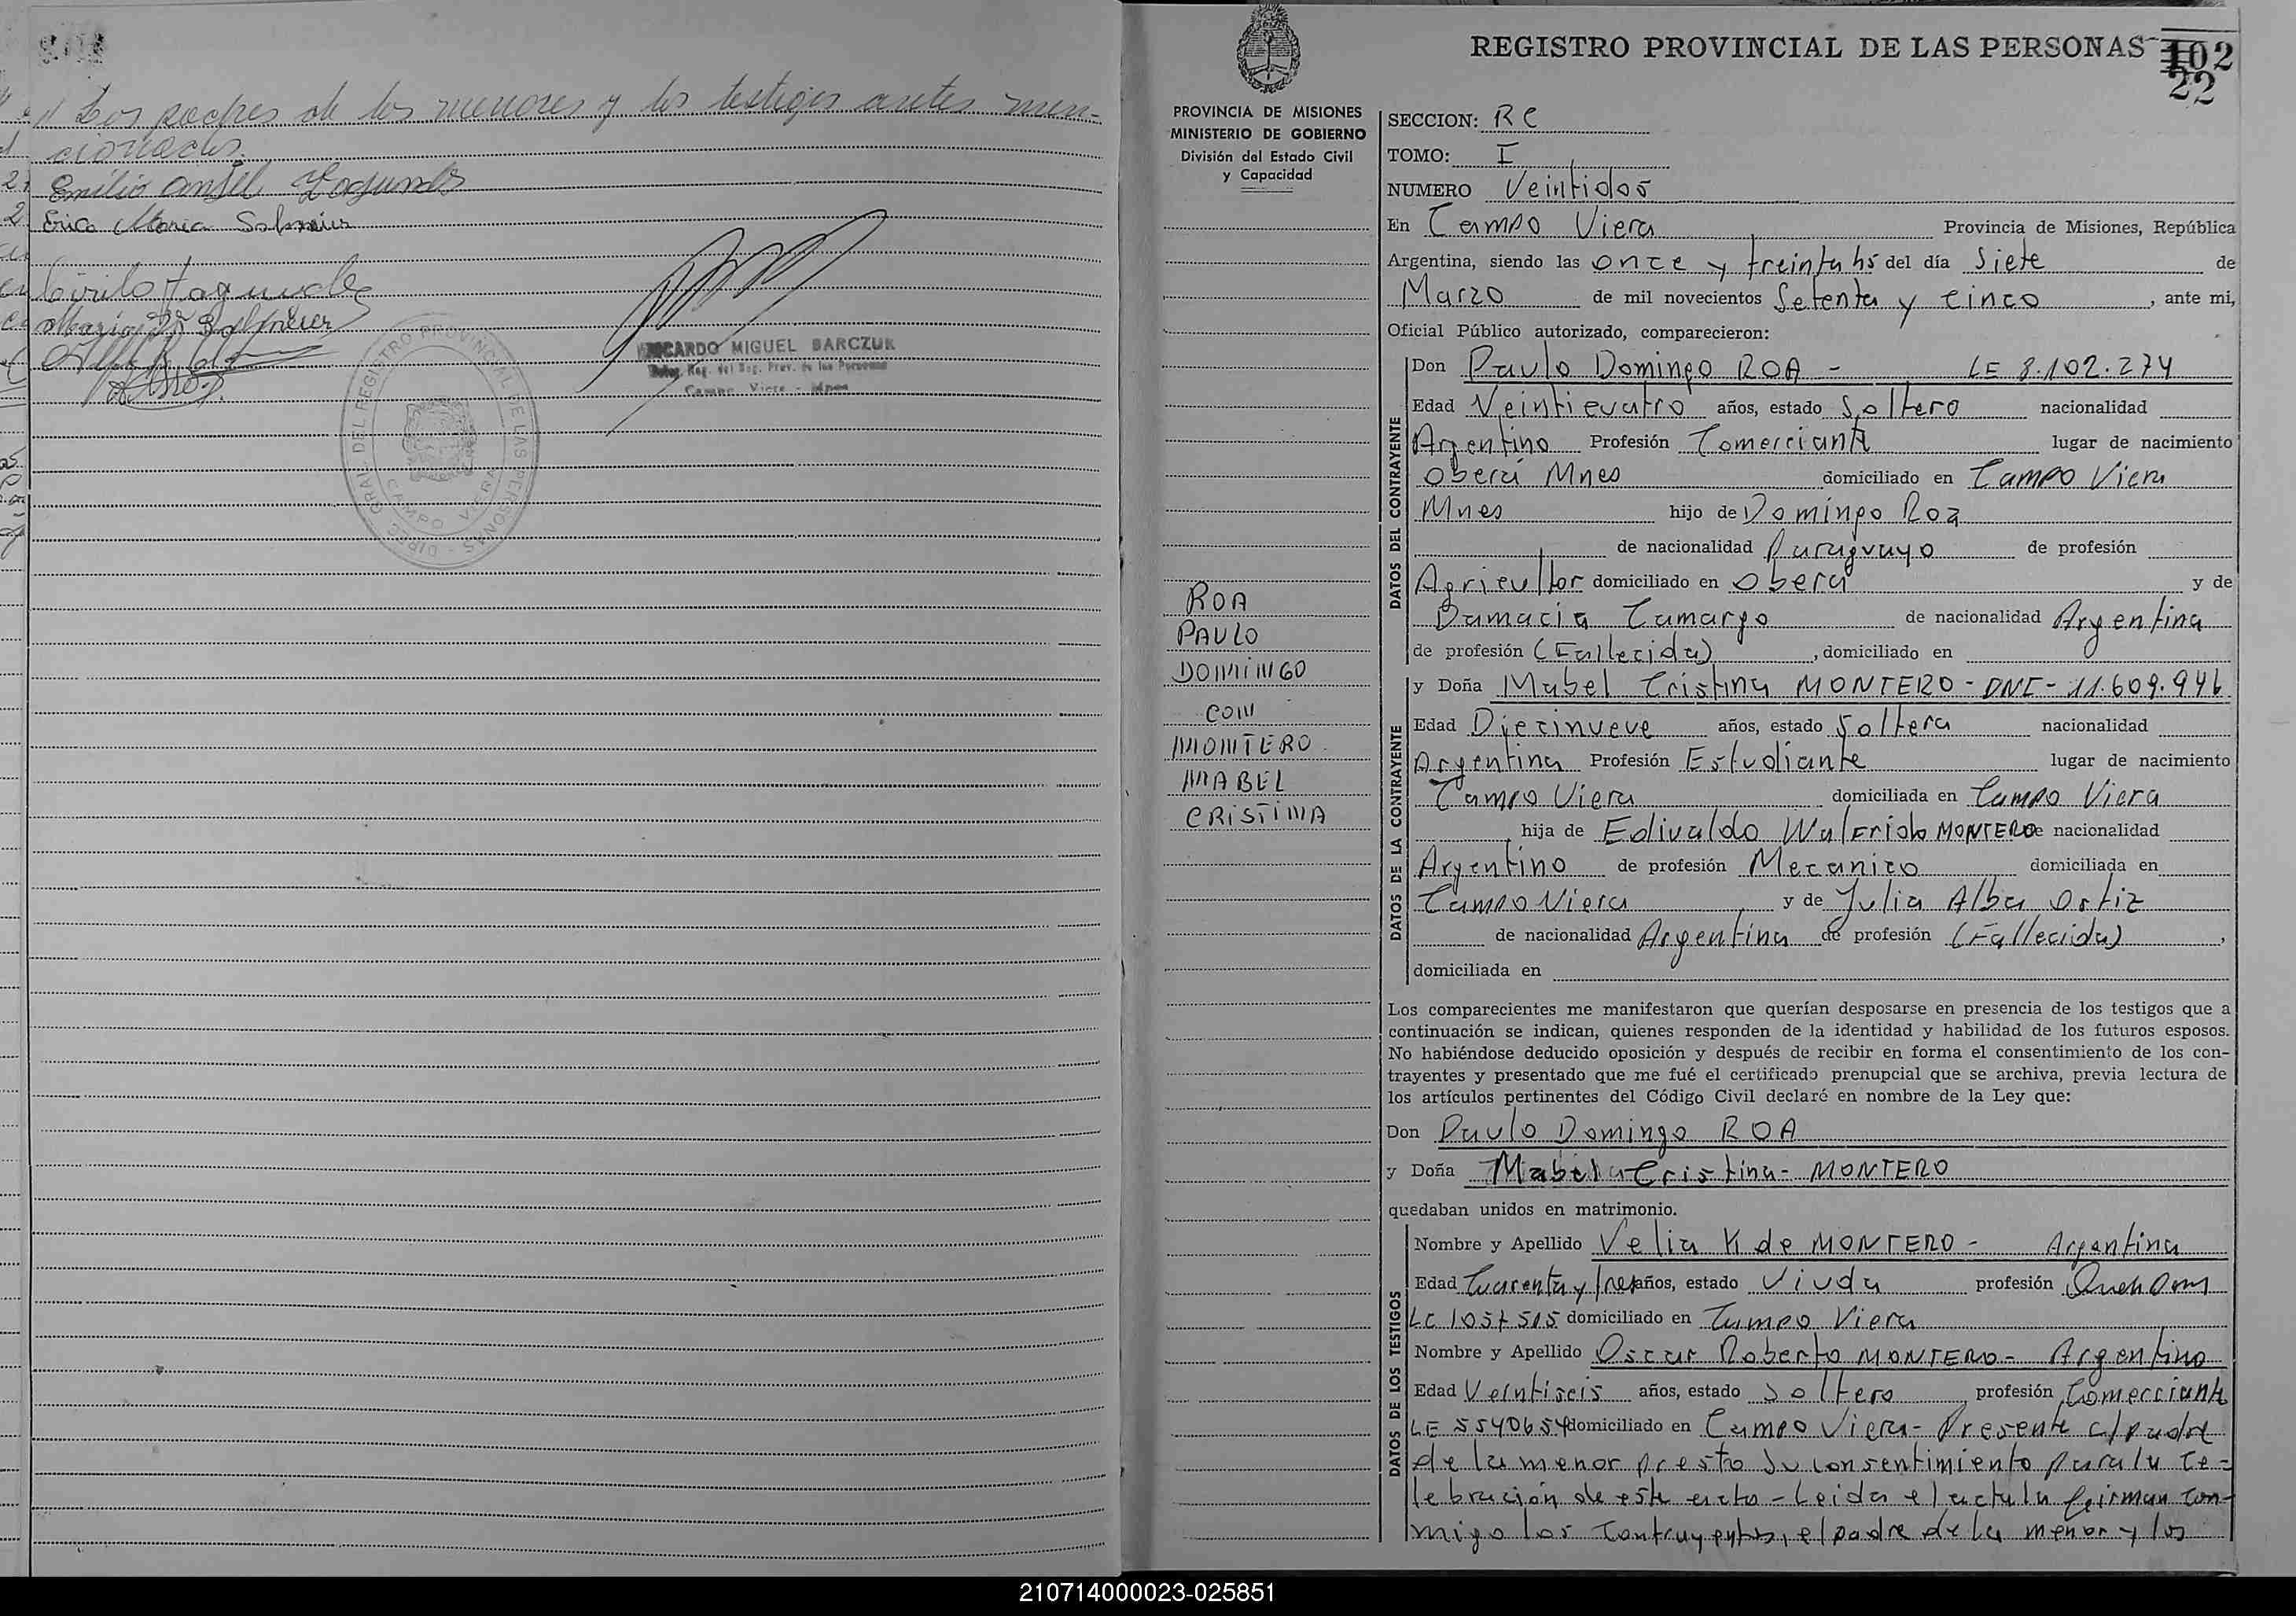 // Los padres de los menores y los testigos antes men-
cionados.
Emilio Angel Fagundes
Cirilo Fagundes
RICARDO MIGUEL BARCZUK
Deleg. Reg. del Reg. Prov. de las Personas
Campo Viera - Mnes
DIREC. GRAL. DEL REGISTRO PROVINCIAL DE LAS PERSONAS
CAMPO VIERA
REGISTRO PROVINCIAL DE LAS PERSONAS
102
22
PROVINCIA DE MISIONES
MINISTERIO DE GOBIERNO
División del Estado Civil
y Capacidad
ROA
PAULO
DOMINGO
CON
MONTERO
MABEL
CRISTINA
SECCION: RC
TOMO: I
NUMERO Veintidos
En Campo Viera Provincia de Misiones, República
Argentina, siendo las once y treinta hs del día Siete de
Marzo de mil novecientos Setenta y cinco, ante mi,
Oficial Público autorizado, comparecieron:
DATOS DEL CONTRAYENTE
Don Paulo Domingo ROA - LE 8.102.274
Edad Veinticuatro años, estado Soltero nacionalidad
Argentino Profesión Comerciante lugar de nacimiento
Oberá Mnes domiciliado en Campo Viera
Mnes hijo de Domingo Roa
de nacionalidad Paraguayo de profesión
Agricultor domiciliado en Obera y de
Damacia Camargo de nacionalidad Argentina
de profesión (Fallecida), domiciliado en
DATOS DE LA CONTRAYENTE
y Doña Mabel Cristina MONTERO - DNI - 11.609.946
Edad Diecinueve años, estado Soltera nacionalidad
Argentina Profesión Estudiante lugar de nacimiento
Campo Viera domiciliada en Campo Viera
hija de Edivaldo Walfrido MONTERO de nacionalidad
Argentino de profesión Mecanico domiciliada en
Campo Viera y de Julia Alba Ortiz
de nacionalidad Argentina de profesión (Fallecida),
domiciliada en
Los comparecientes me manifestaron que querían desposarse en presencia de los testigos que a
continuación se indican, quienes responden de la identidad y habilidad de los futuros esposos.
No habiéndose deducido oposición y después de recibir en forma el consentimiento de los con-
trayentes y presentado que me fué el certificado prenupcial que se archiva, previa lectura de
los artículos pertinentes del Código Civil declaré en nombre de la Ley que:
Don Paulo Domingo ROA
y Doña Mabel Cristina - MONTERO
quedaban unidos en matrimonio.
DATOS DE LOS TESTIGOS
Nombre y Apellido Velia K de MONTERO - Argentina
Edad Cuarenta y tres años, estado Viuda profesión
LC 1057515 domiciliado en Campo Viera
Nombre y Apellido Oscar Roberto MONTERO - Argentino
Edad Veintiseis años, estado Soltero profesión Comerciante
LE 5540654 domiciliado en Campo Viera - Presente el padre
de la menor presto su consentimiento para la ce-
lebración de este acto - Leida el acta la firman con-
migo los contrayentes, el padre de la menor y los
210714000023-025851